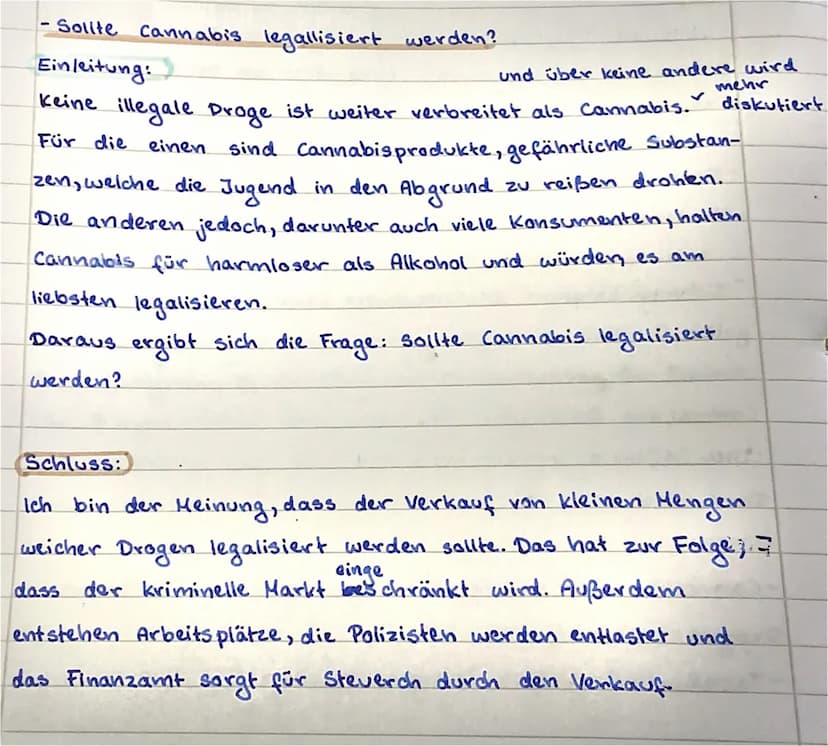 - Sollte Cannabis legallisiert werden?
Einleitung:
und über keine andere wird
mehr
Keine illegale Droge ist weiter verbreitet als Cannabis. ✓ diskutiert
Für die einen sind Cannabisprodukte, gefährliche Substan-
zen, welche die Jugend in den Abgrund zu reißen drohen.
Die anderen jedoch, darunter auch viele Konsumenten, halten
Cannabis für harmloser als Alkohol und würden es am
liebsten legalisieren.
Daraus ergibt sich die Frage: Sollte Cannabis legalisiert
werden?
Schluss:
Ich bin der Meinung, dass der Verkauf von kleinen Mengen
weicher Drogen legalisiert werden sollte. Das hat zur Folge,
einge
dass der kriminelle Markt schränkt wird. Außerdem
entstehen Arbeitsplätze, die Polizisten werden entlastet und
das Finanzamt sorgt für Steuern durch den Verkauf.